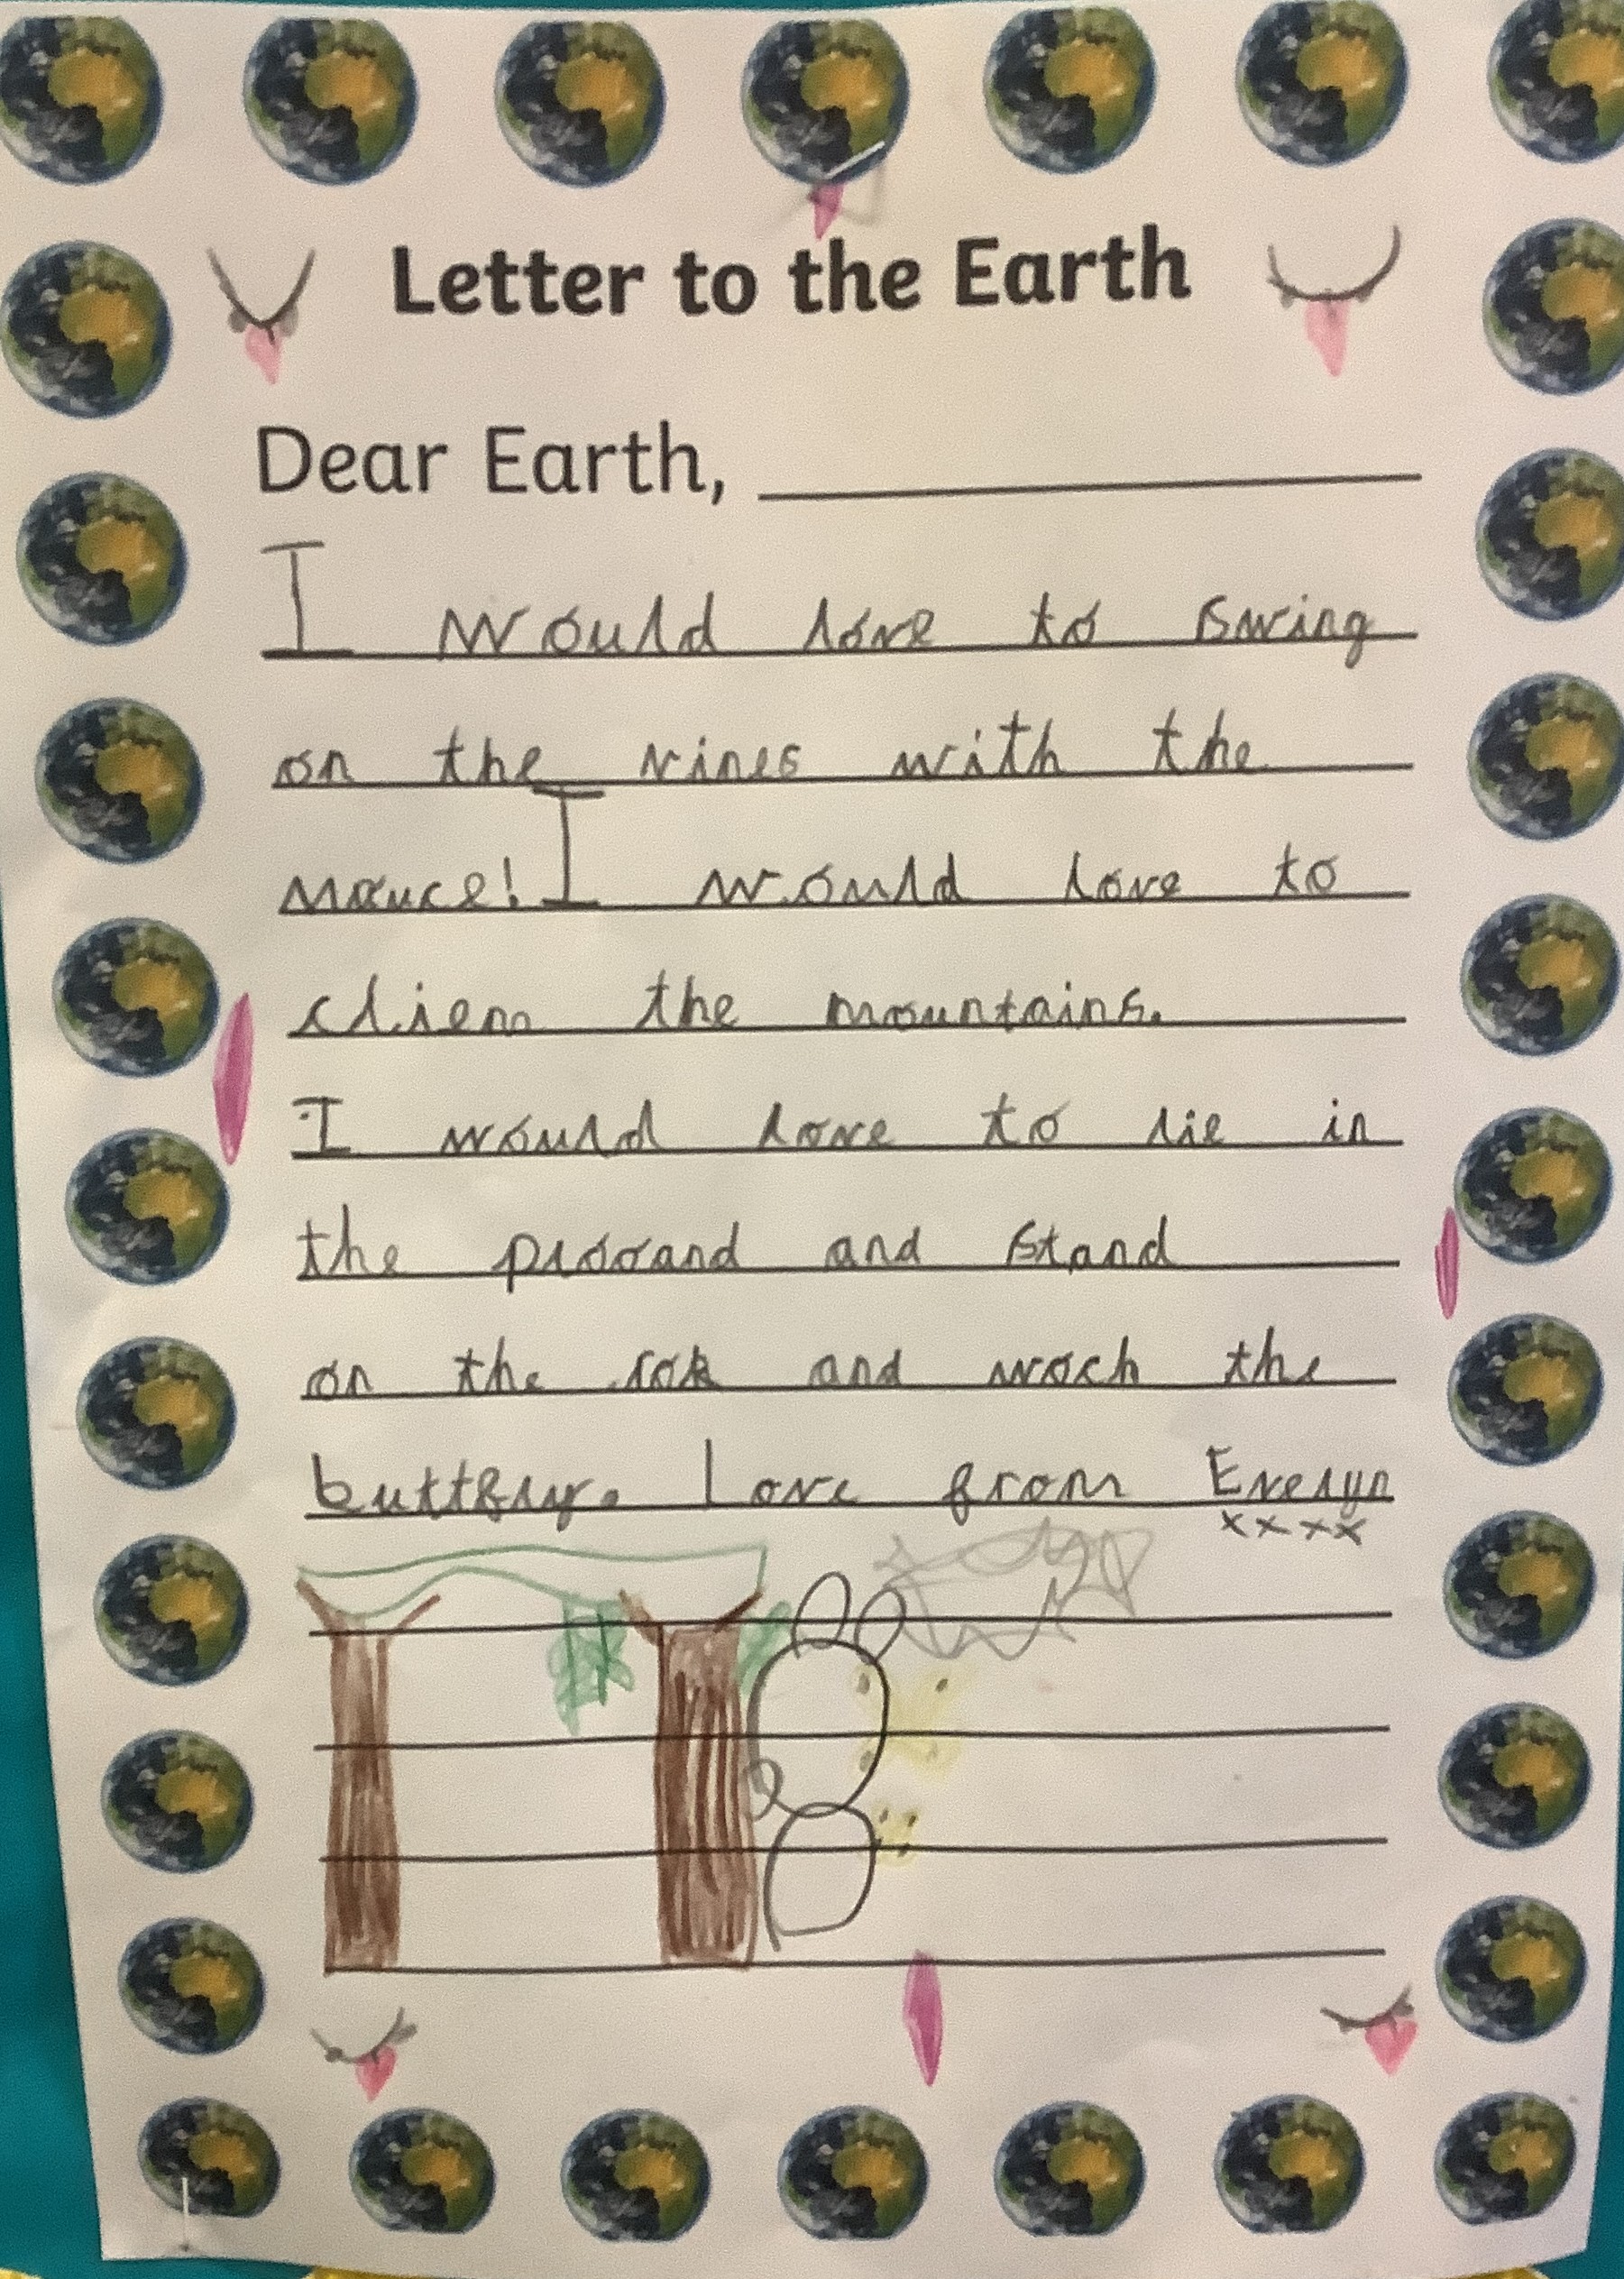 Letter to the Earth
Dear Earth,
I would love to swing
on the vines with the
mauce! I would love to
cliem the mountains.
I would love to lie in
the plooand and stand
on the rok and woch the
buttfly. Love from Evelyn
xxxx